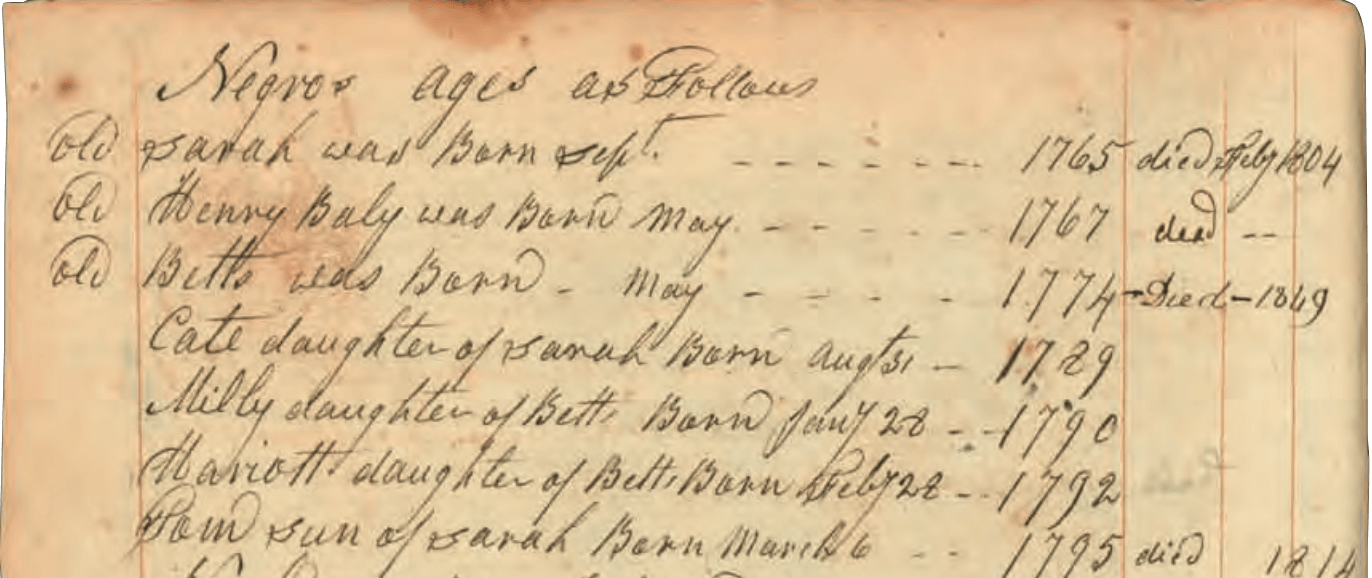 Negros ages as Follows
old Sarah was Born Sept. - - - - - - - 1765 died Feby 1804
old Henry Baly was Born May - - - - - - 1767 dead --
old Betts was Born - May - - - - 1774 - Died - 1849
Cate daughter of Sarah Born Augt 31 - 1789
Milly daughter of Betts Born Jany 28 - - 1790
Hariott daughter of Betts Born Feby 28 - - 1792
Tom Sun of Sarah Born March 6 - - 1795 died 1814